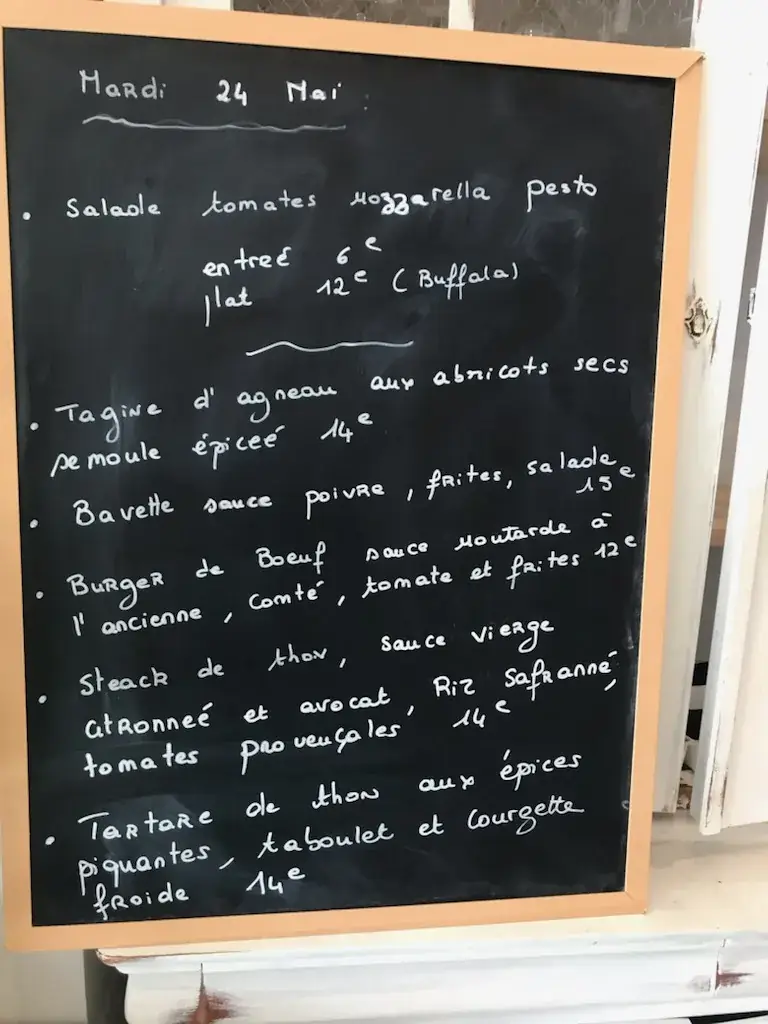 Mardi 24 Mai
• Salade tomates Mozzarella pesto
entreé 6e
plat 12e (Buffala)
• Tagine d'agneau aux abricots secs
semoule épiceé 14e
• Bavette sauce poivre, frites, salade
15e
• Burger de Boeuf sauce Moutarde à
l'ancienne, comté, tomate et frites 12e
• Steack de thon, sauce vierge
citronneé et avocat, Riz Safranné,
tomates provençales 14e
• Tartare de thon aux épices
piquantes, taboulet et courgette
froide 14e